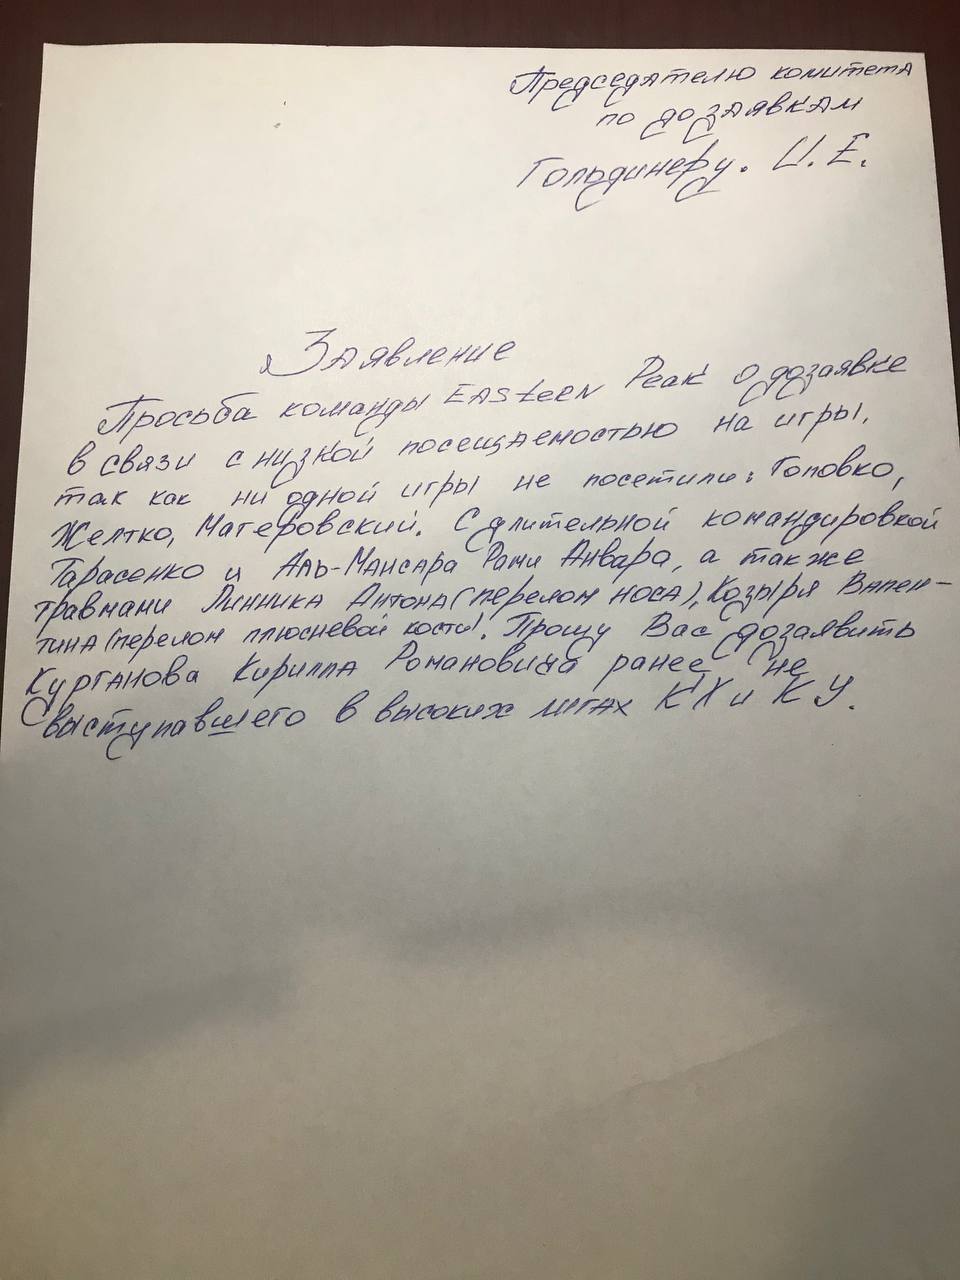 Председателю комитета
по дозаявкам
Гольдинеру. И. Е.
Заявление
Просьба команды EASteeN Peak о дозаявке
в связи с низкой посещаемостью на игры,
так как ни одной игры не посетили: Головко,
Желтко, Магеровский. С длительной командировкой
Тарасенко и Аль-Мансара Рами Анвара, а также
травмами Линника Антона (перелом носа), Козыря Вален-
тина (перелом плюсневой кости). Прошу Вас дозаявить
Курганова Кирилла Романовича ранее не
выступавшего в высоких лигах КХ и КУ.